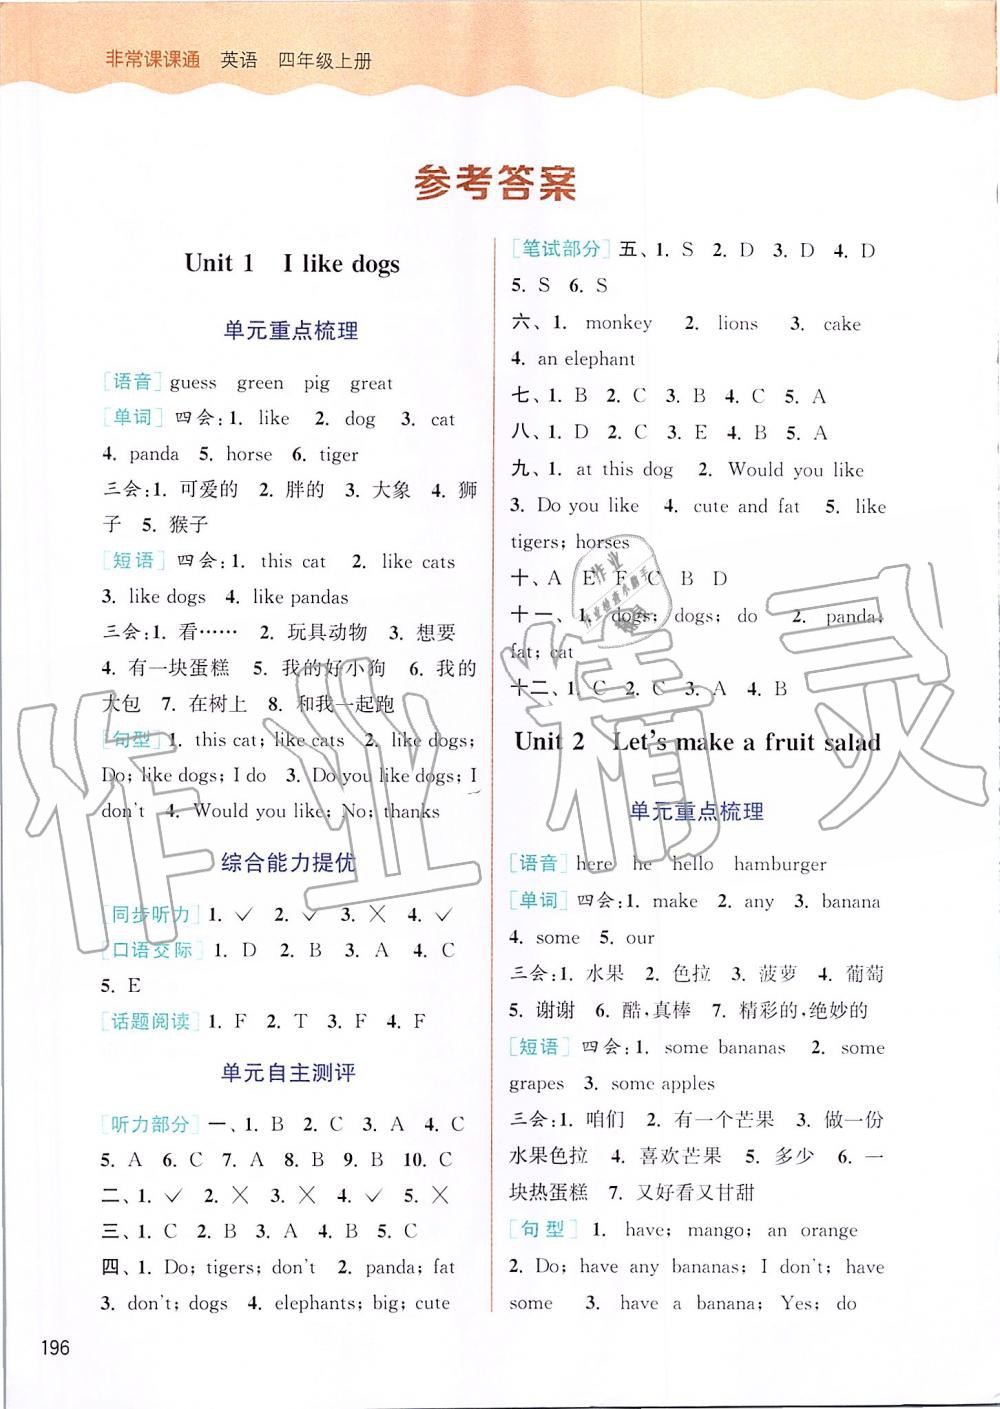 非常课课通 英语 四年级上册
参考答案
Unit 1 I like dogs
单元重点梳理
[语音] guess green pig great
[单词] 四会:1. like 2. dog 3. cat
4. panda 5. horse 6. tiger
三会:1. 可爱的 2. 胖的 3. 大象 4. 狮
子 5. 猴子
[短语] 四会:1. this cat 2. like cats
3. like dogs 4. like pandas
三会:1. 看…… 2. 玩具动物 3. 想要
4. 有一块蛋糕 5. 我的好小狗 6. 我的
大包 7. 在树上 8. 和我一起跑
[句型] 1. this cat; like cats 2. like dogs;
Do; like dogs; I do 3. Do you like dogs; I
don't 4. Would you like; No; thanks
综合能力提优
[同步听力] 1. ✓ 2. ✓ 3. ✕ 4. ✓
[口语交际] 1. D 2. B 3. A 4. C
5. E
[话题阅读] 1. F 2. T 3. F 4. F
单元自主测评
[听力部分] 一、1. B 2. C 3. A 4. C
5. A 6. C 7. A 8. B 9. B 10. C
二、1. ✓ 2. ✕ 3. ✕ 4. ✓ 5. ✕
三、1. C 2. B 3. A 4. B 5. C
四、1. Do; tigers; don't 2. panda; fat
3. don't; dogs 4. elephants; big; cute
[笔试部分] 五、1. S 2. D 3. D 4. D
5. S 6. S
六、1. monkey 2. lions 3. cake
4. an elephant
七、1. B 2. C 3. B 4. C 5. A
八、1. D 2. C 3. E 4. B 5. A
九、1. at this dog 2. Would you like
3. Do you like 4. cute and fat 5. like
tigers; horses
十、A E F C B D
十一、1. dogs; dogs; do 2. panda;
fat; cat
十二、1. C 2. C 3. A 4. B
Unit 2 Let's make a fruit salad
单元重点梳理
[语音] here he hello hamburger
[单词] 四会:1. make 2. any 3. banana
4. some 5. our
三会:1. 水果 2. 色拉 3. 菠萝 4. 葡萄
5. 谢谢 6. 酷,真棒 7. 精彩的,绝妙的
[短语] 四会:1. some bananas 2. some
grapes 3. some apples
三会:1. 咱们 2. 有一个芒果 3. 做一份
水果色拉 4. 喜欢芒果 5. 多少 6. 一
块热蛋糕 7. 又好看又甘甜
[句型] 1. have; mango; an orange
2. Do; have any bananas; I don't; have
some 3. have a banana; Yes; do
196
作业精灵